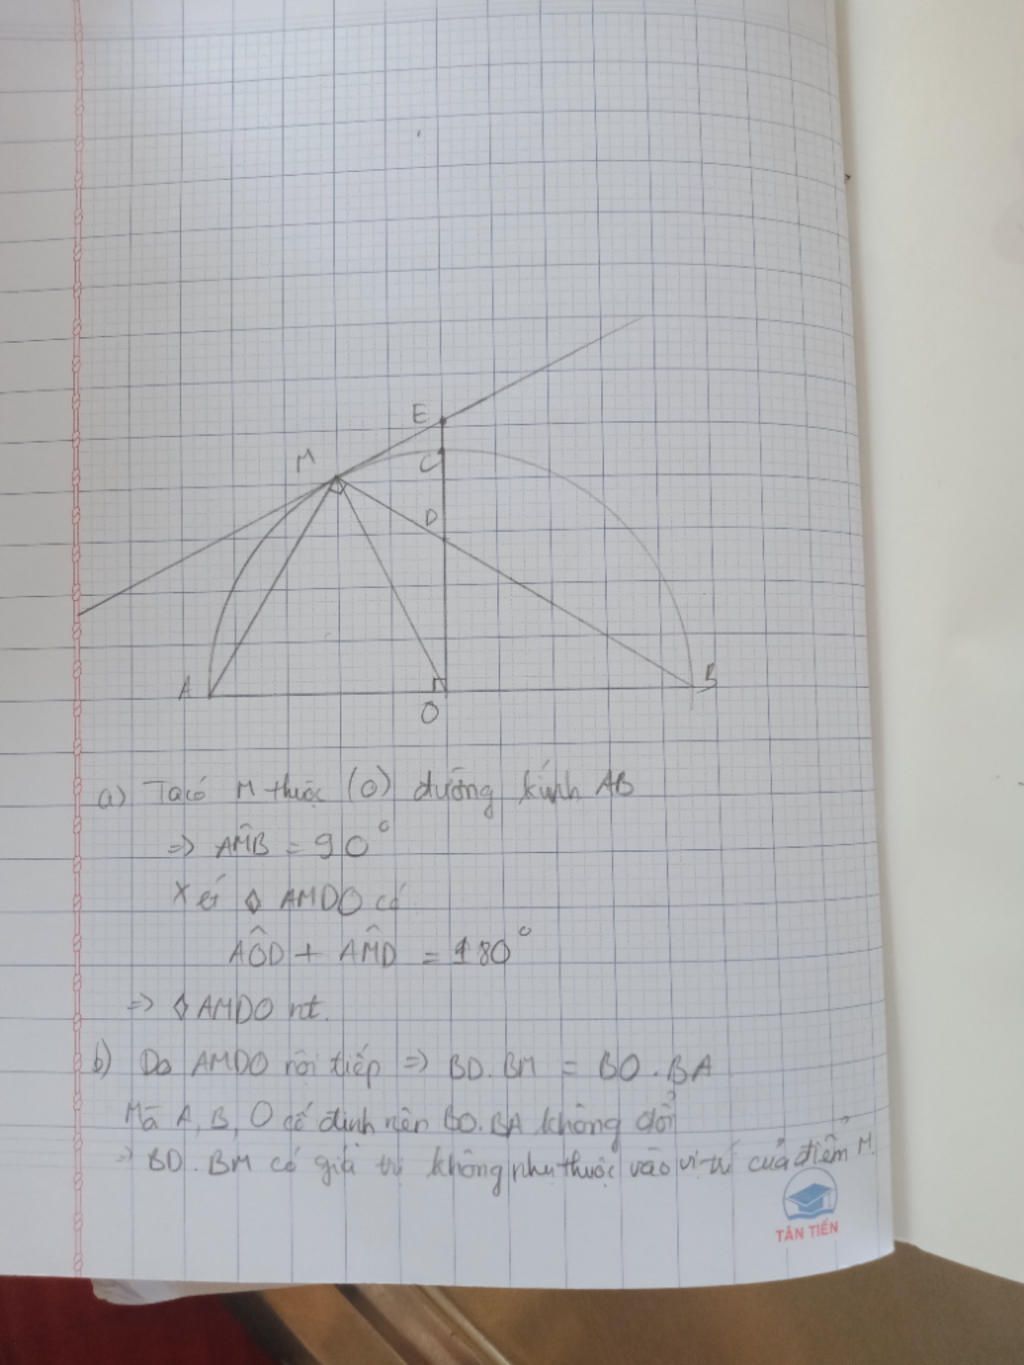 E
M
C
D
A
B
O
a) Ta có M thuộc (O) đường kính AB
=> AMB̂ = 90°
Xét ◊ AMDO có
AÔD + AM̂D = 180°
=> ◊ AMDO nt.
b) Do AMDO nội tiếp => BD.BM = BO.BA
Mà A, B, O cố định nên BO.BA không đổi
=> BD.BM có giá trị không phụ thuộc vào vị trí của điểm M.
TÂN TIẾN